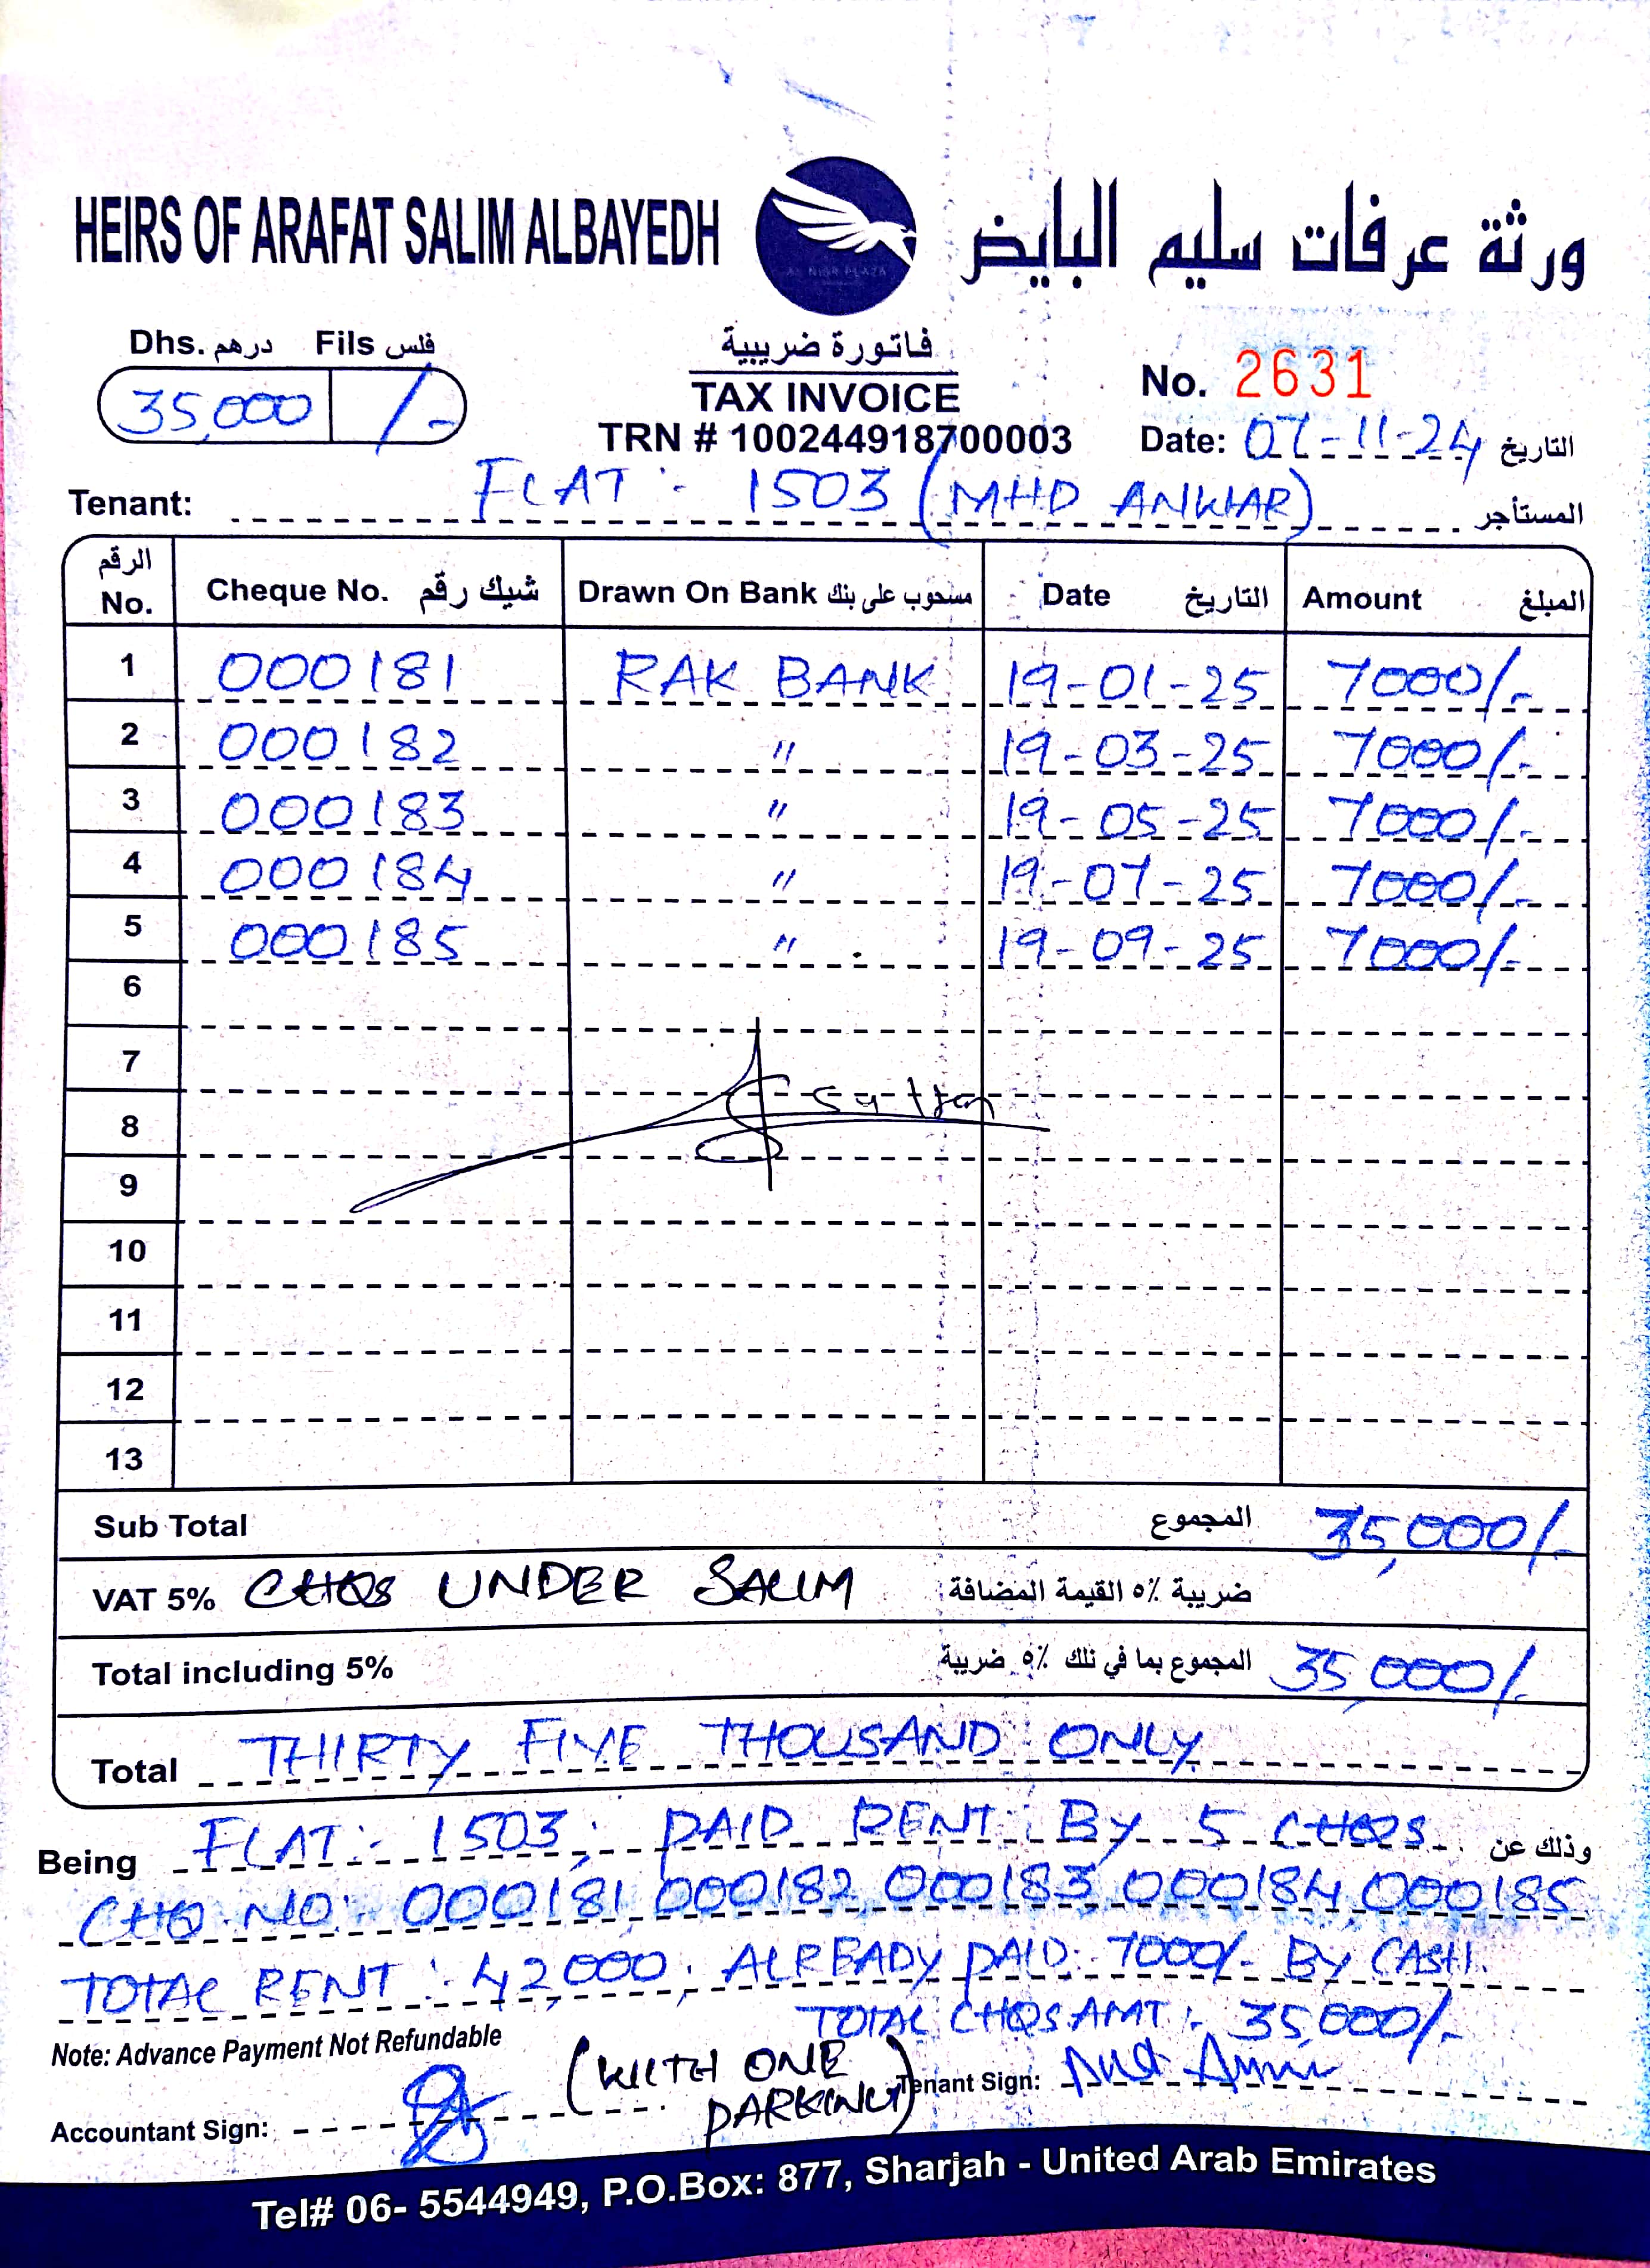 HEIRS OF ARAFAT SALIM ALBAYEDH
ورثة عرفات سليم البايض
AL NISR PLAZA
Dhs. درهم Fils فلس
35,000 /-
فاتورة ضريبية
TAX INVOICE
TRN # 100244918700003
No. 2631
Date: 07-11-24 التاريخ
Tenant: FLAT :- 1503 (MHD ANWAR) المستأجر
الرقم No. Cheque No. شيك رقم Drawn On Bank مسحوب على بنك Date التاريخ Amount المبلغ
1 000181 RAK BANK 19-01-25 7000/-
2 000182 " 19-03-25 7000/-
3 000183 " 19-05-25 7000/-
4 000184 " 19-07-25 7000/-
5 000185 " 19-09-25 7000/-
6
7
8
9
10
11
12
13
Sub Total المجموع 35,000/-
VAT 5% CHQS UNDER SALIM ضريبة ٥٪ القيمة المضافة
Total including 5% المجموع بما في تلك ٥٪ ضريبة 35,000/-
Total THIRTY FIVE THOUSAND ONLY
Being FLAT :- 1503, PAID RENT : BY 5 CHQS وذلك عن
CHQ. NO: 000181, 000182, 000183, 000184, 000185
TOTAL RENT :- 42,000, ALREADY PAID: 7000/- BY CASH.
TOTAL CHQS AMT :- 35,000/-
Note: Advance Payment Not Refundable
(WITH ONE PARKING)
Tenant Sign:
Accountant Sign:
Tel# 06- 5544949, P.O.Box: 877, Sharjah - United Arab Emirates